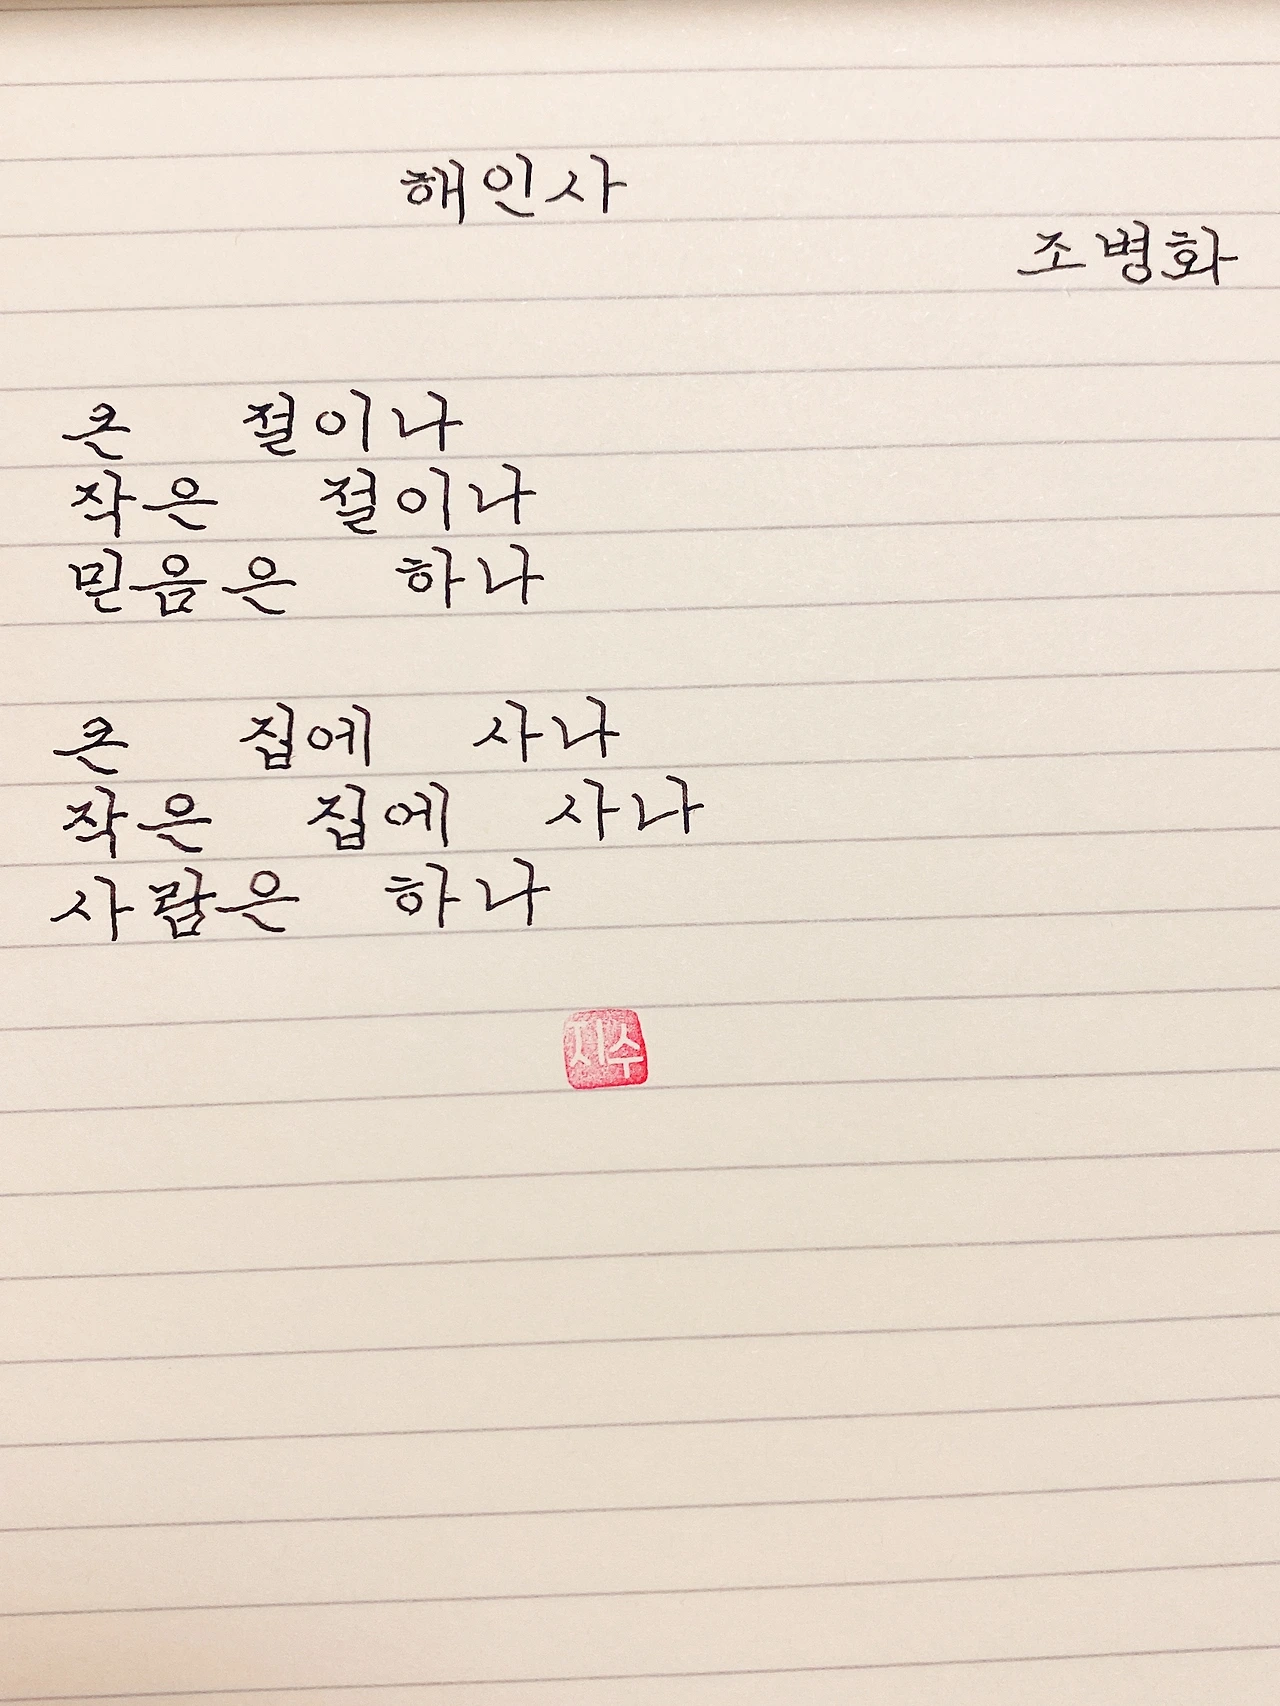 해인사
조병화
큰 절이나
작은 절이나
믿음은 하나
큰 집에 사나
작은 집에 사나
사람은 하나
지수